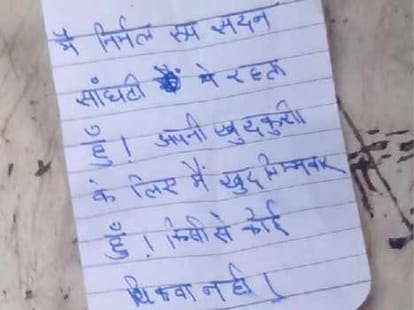 मै निर्मल एस सदन
सांघटी में रहता
हुँ। अपनी खुदकुशी
के लिए मैं खुद जिम्मवार
हुँ। किसी से कोई
शिकवा नही।